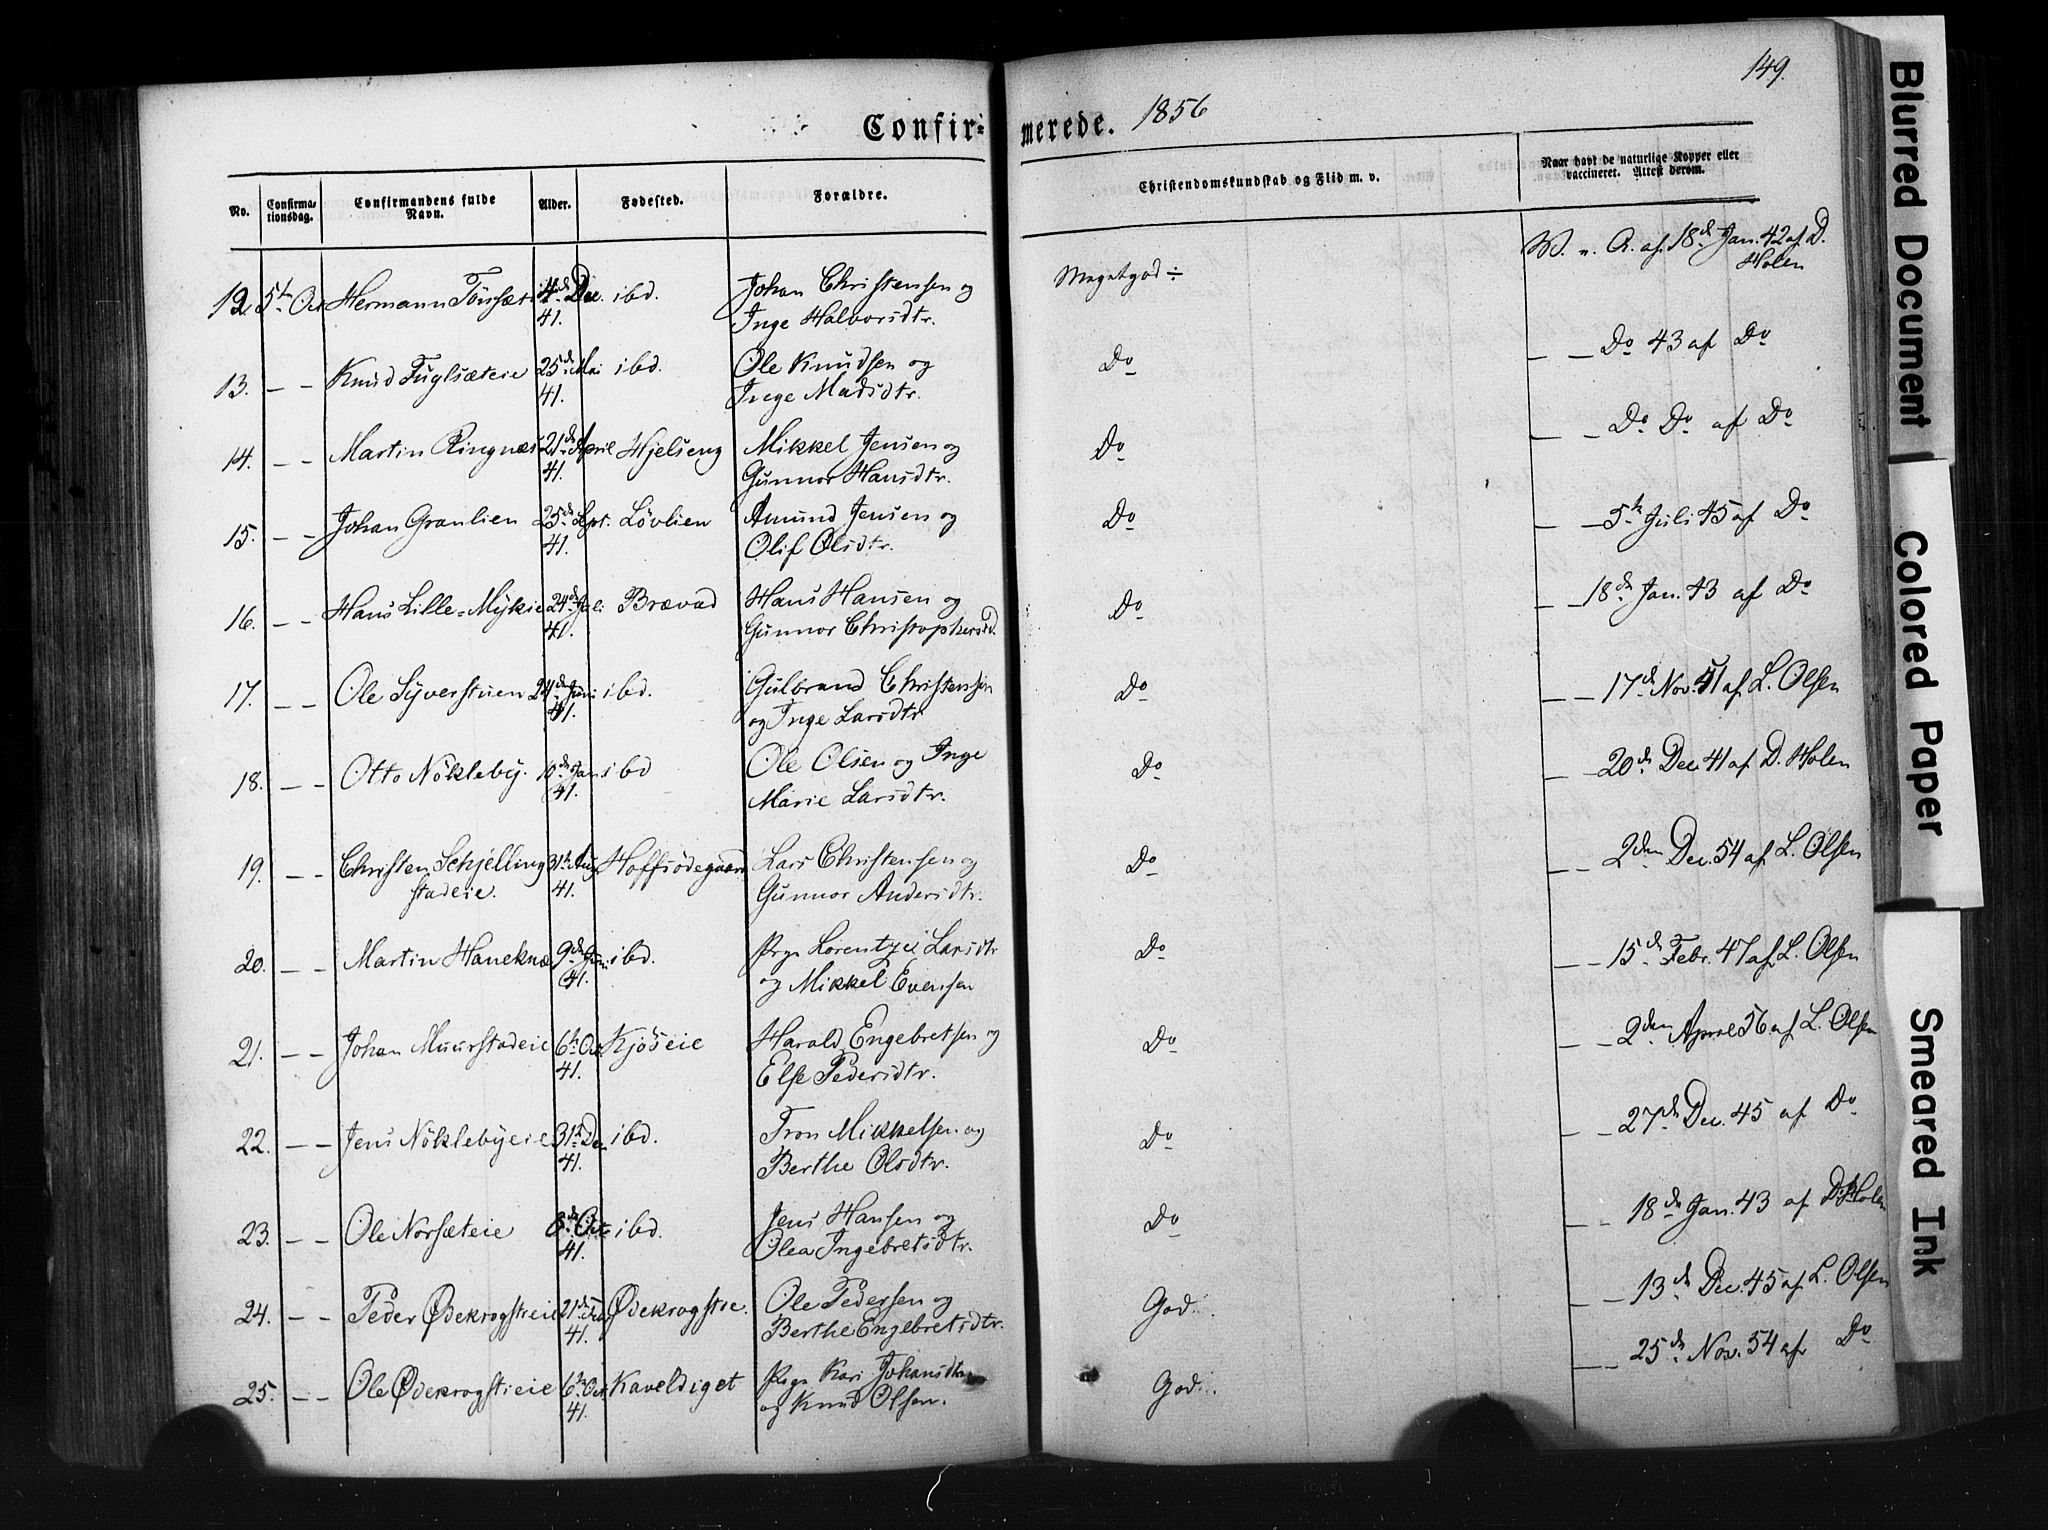 149.
Confir= merede. 1856
No. Confirmationsdag. Confirmandens fulde Navn. Alder. Fødested. Forældre. Christendomskundskab og Flid m. v. Naar havt de naturlige Kopper eller vaccineret. Attest derom.
12. 5te Oct Hermann Tönsæt 4de Dec. ibd. Johan Christensen og Megetgod ÷ W. v. A. af 18de Jan. 42 af D.
41. Inge Halvorsdtr. Holen
13. — — Knud Fuglsæteie 25de Mai ibd. Ole Knudsen og Do — — Do 43 af Do
41. Inge Madsdtr.
14. — — Martin Ringnæs 21de April Hjelseng Mikkel Jensen og Do — — Do Do af Do
41. Gunnor Hansdtr.
15. — — Johan Granlien 25de Sept. Lövlien Amund Jensen og Do — — 5te Juli 45 af Do
41. Olif Olsdtr.
16. — — Hans Lille=Mÿkie 24de Juli Brævad Hans Hansen og Do — — 18de Jan. 43 af Do
41. Gunnor Christophersd.
17. — — Ole Syverstuen 24de Juni ibd. Gulbrand Christensen Do — — 17de Nov. 41 af L. Olsen
41. og Inge Larsdtr
18. — — Otto Nökleby. 10de Jan ibd Ole Olsen og Inge Do — — 20de Dec. 41 af D. Holen
41. Marie Larsdtr.
19. — — Christen Schjelling 31te Aug Hoffsödegaard Lars Christensen og Do — — 2den Dec. 54 af L. Olsen
stadeie. 41. Gunnor Andersdtr.
20. — — Martin Haneknæ 9de Juni ibd. Pige Lorentze Larsdtr Do — — 15de Febr. 47 af L. Olsen
41. og Mikkel Evensen
21. — — Johan Muurstadeie 6te Oct Kjöseie Harald Engebretsen og Do — — 2den April 56 af L. Olsen
41. Else Pedersdtr.
22. — — Jens Nöklebyeie 31te Dec ibd. Tron Mikkelsen og Do — — 27de Dec. 45 af Do
41. Berthe Olsdtr.
23. — — Ole Norsæteie 8de Oct ibd. Jens Hansen og Do — — 18de Jan. 43 af D. Holen
41. Olea Ingebretsdtr.
24. — — Peder Ødekrogstreie 21de Ødekrogstie. Ole Pedersen og God. — — 13de Dec. 45 af L. Olsen
41. Berthe Engebretsdtr.
25. — — Ole Ødekrogstieie 6te Oct Kaveldiget Pige Kari Johansdtr God. — — 25de Nov. 54 af Do
41. og Knud Olsen.
Blurred Document
Colored Paper
Smeared Ink